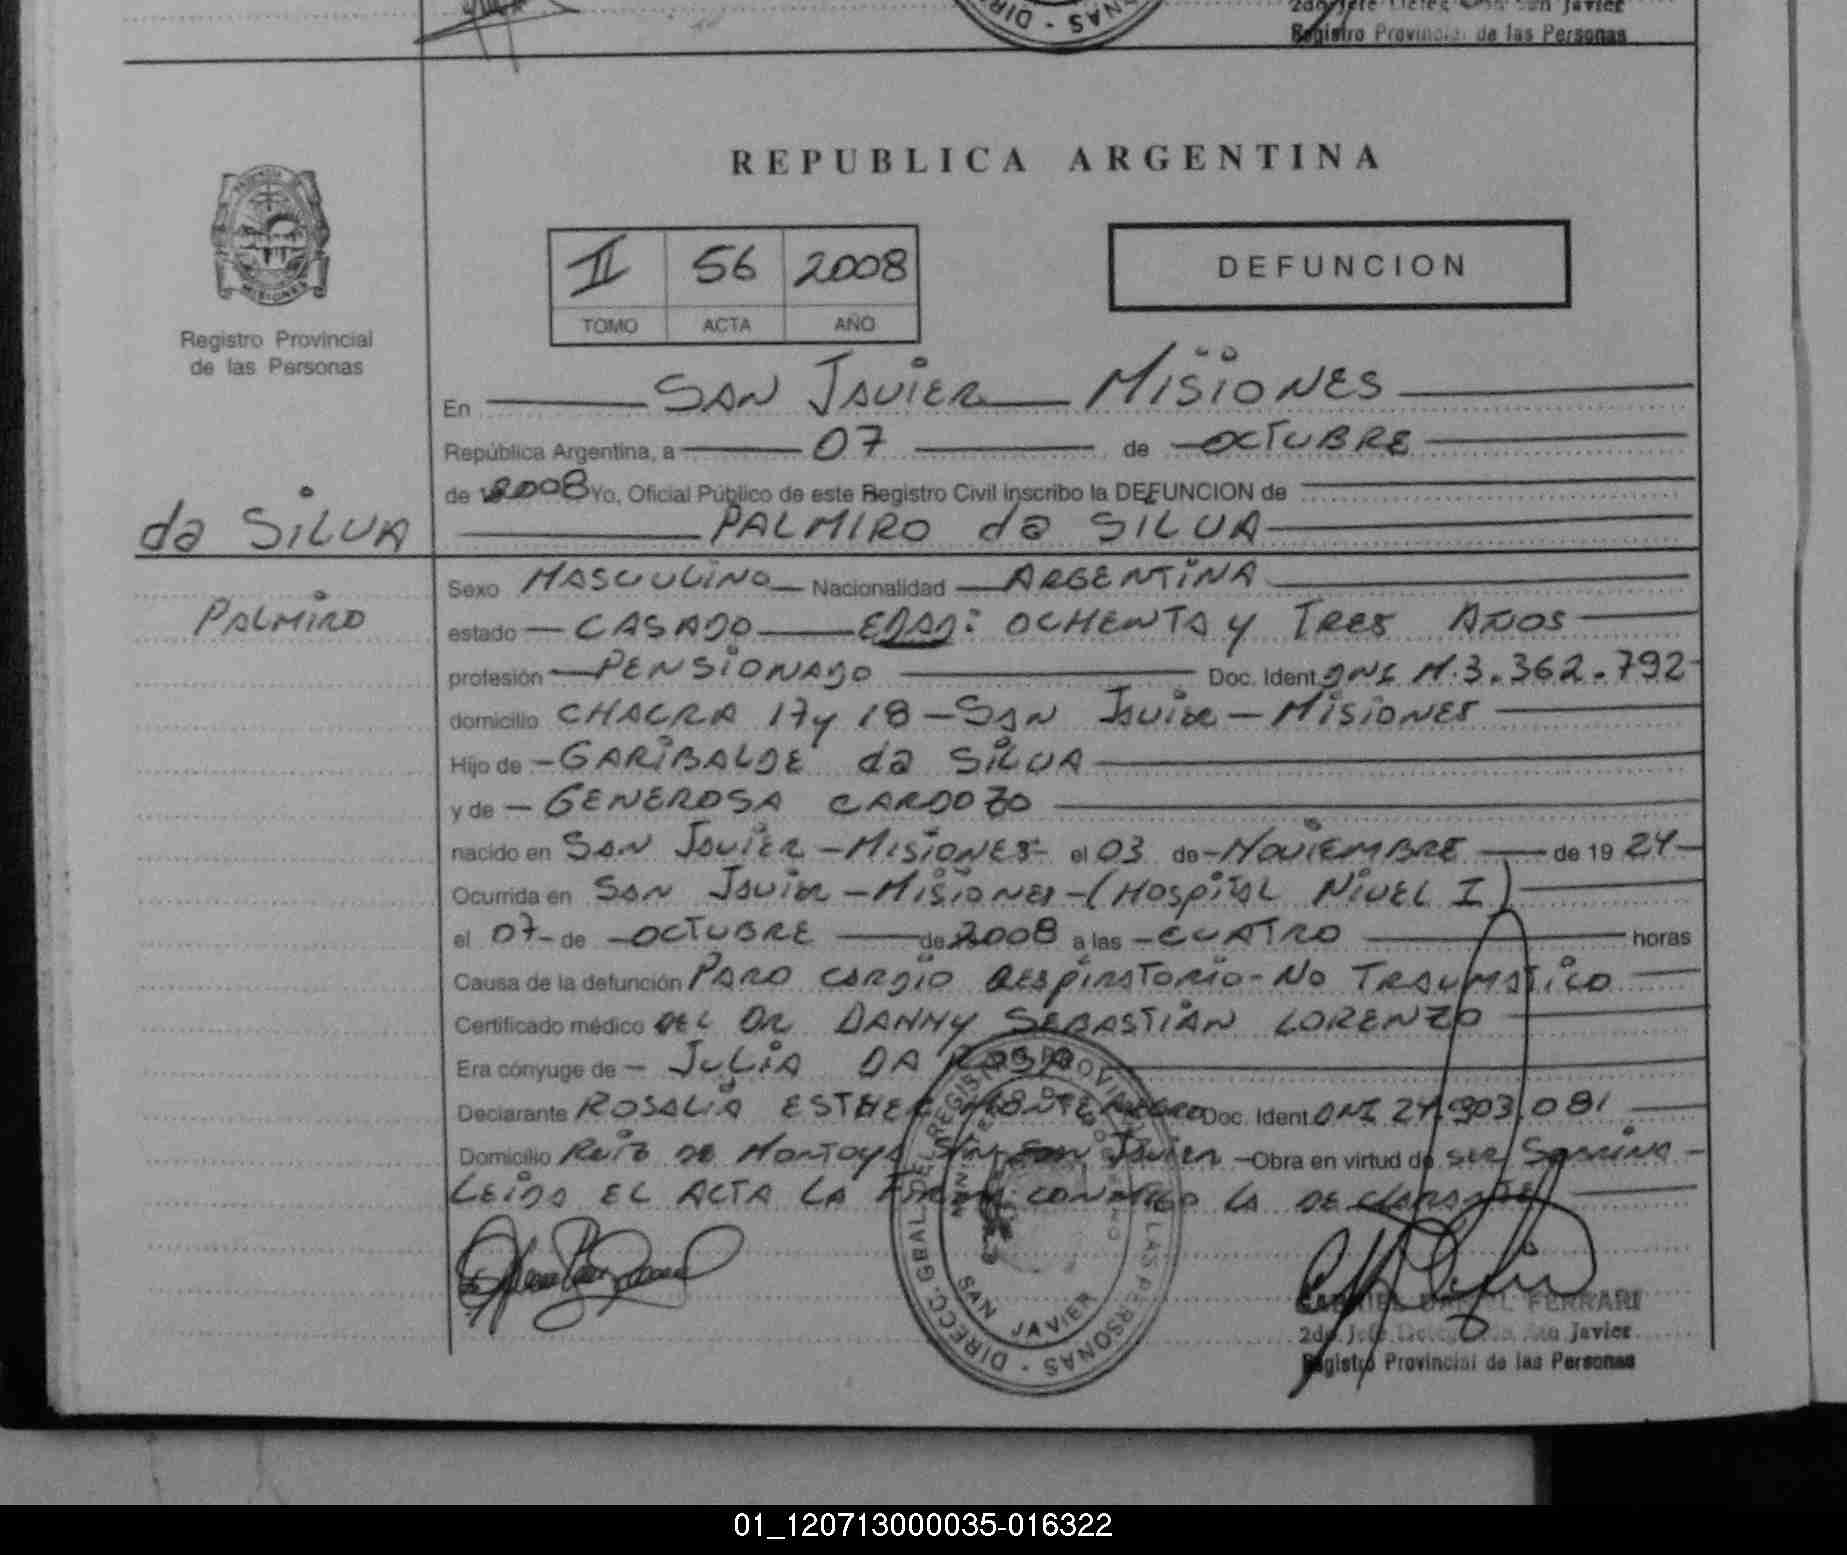 2do Jefe Deleg San Javier
Registro Provincial de las Personas
REPUBLICA ARGENTINA
II 56 2008
TOMO ACTA AÑO
DEFUNCION
MISIONES
Registro Provincial
de las Personas
En SAN JAVIER MISIONES
República Argentina, a 07 de OCTUBRE
de 2008 Yo, Oficial Público de este Registro Civil inscribo la DEFUNCION de
da SILVA
PALMIRO da SILVA
PALMIRO
Sexo MASCULINO Nacionalidad ARGENTINA
estado CASADO EDAD: OCHENTA y TRES AÑOS
profesión PENSIONADO Doc. Ident DNI M.3.362.792
domicilio CHACRA 17 y 18 - SAN JAVIER - MISIONES
Hijo de GARIBALDE da SILVA
y de GENEROSA CARDOZO
nacido en SAN JAVIER - MISIONES - el 03 de NOVIEMBRE de 19 24
Ocurrida en SAN JAVIER - MISIONES - (HOSPITAL NIVEL I)
el 07 de OCTUBRE de 2008 a las CUATRO horas
Causa de la defunción PARO CARDIO RESPIRATORIO - NO TRAUMATICO
Certificado médico DEL DR DANNY SEBASTIAN LORENZO
Era cónyuge de JULIA DA ROSA
Declarante ROSALIA ESTHER MONTENEGRO Doc. Ident. DNI 24.903.081
Domicilio RUIZ DE MONTOYA S/N SAN JAVIER - Obra en virtud de SER SOBRINA -
LEIDA EL ACTA LA FIRMA CONMIGO LA DECLARANTE
DIRECC. GBAL. DEL REGISTRO PROVINCIAL DE LAS PERSONAS
SAN JAVIER
GABRIEL DANIEL FERRARI
2do. Jefe Delegación San Javier
Registro Provincial de las Personas
01_120713000035-016322